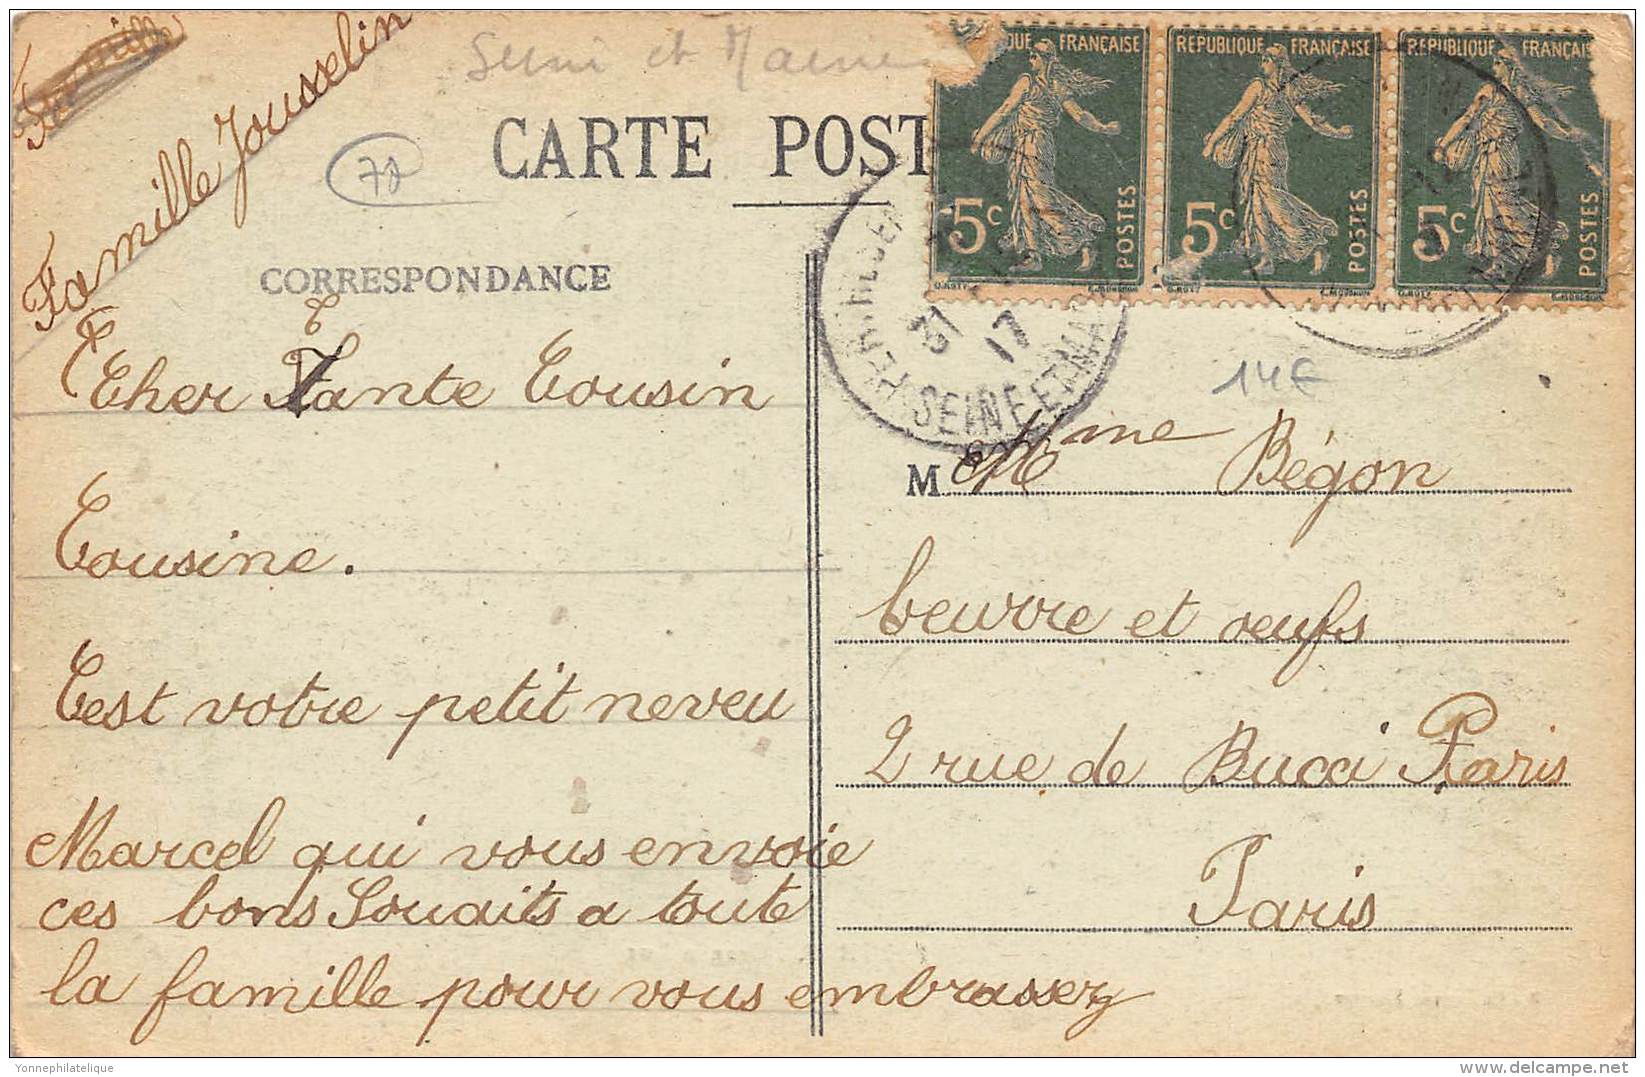 Famille Jousselin
Seine et Marne
77
CARTE POST
CORRESPONDANCE
RÉPUBLIQUE FRANÇAISE
RÉPUBLIQUE FRANÇAISE
5c POSTES
5c POSTES
5c POSTES
31
17
SEINE ET MARNE
14€
Cher Tante Cousin
Cousine.
C'est votre petit neveu
Marcel qui vous envoie
ces bons Souaits a toute
la famille pour vous embrasser
M Mme Bégon
beurre et oeufs
2 rue de Bucci Paris
Paris
Yonnephilatelique
delcampe.net